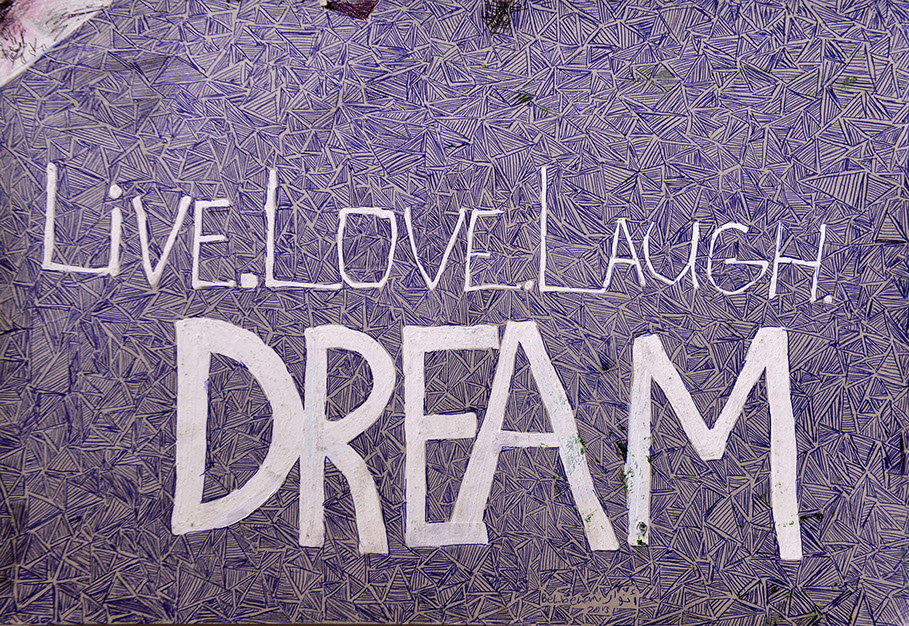 LiVE.LOVE.LAUGH.
DREAM
2013